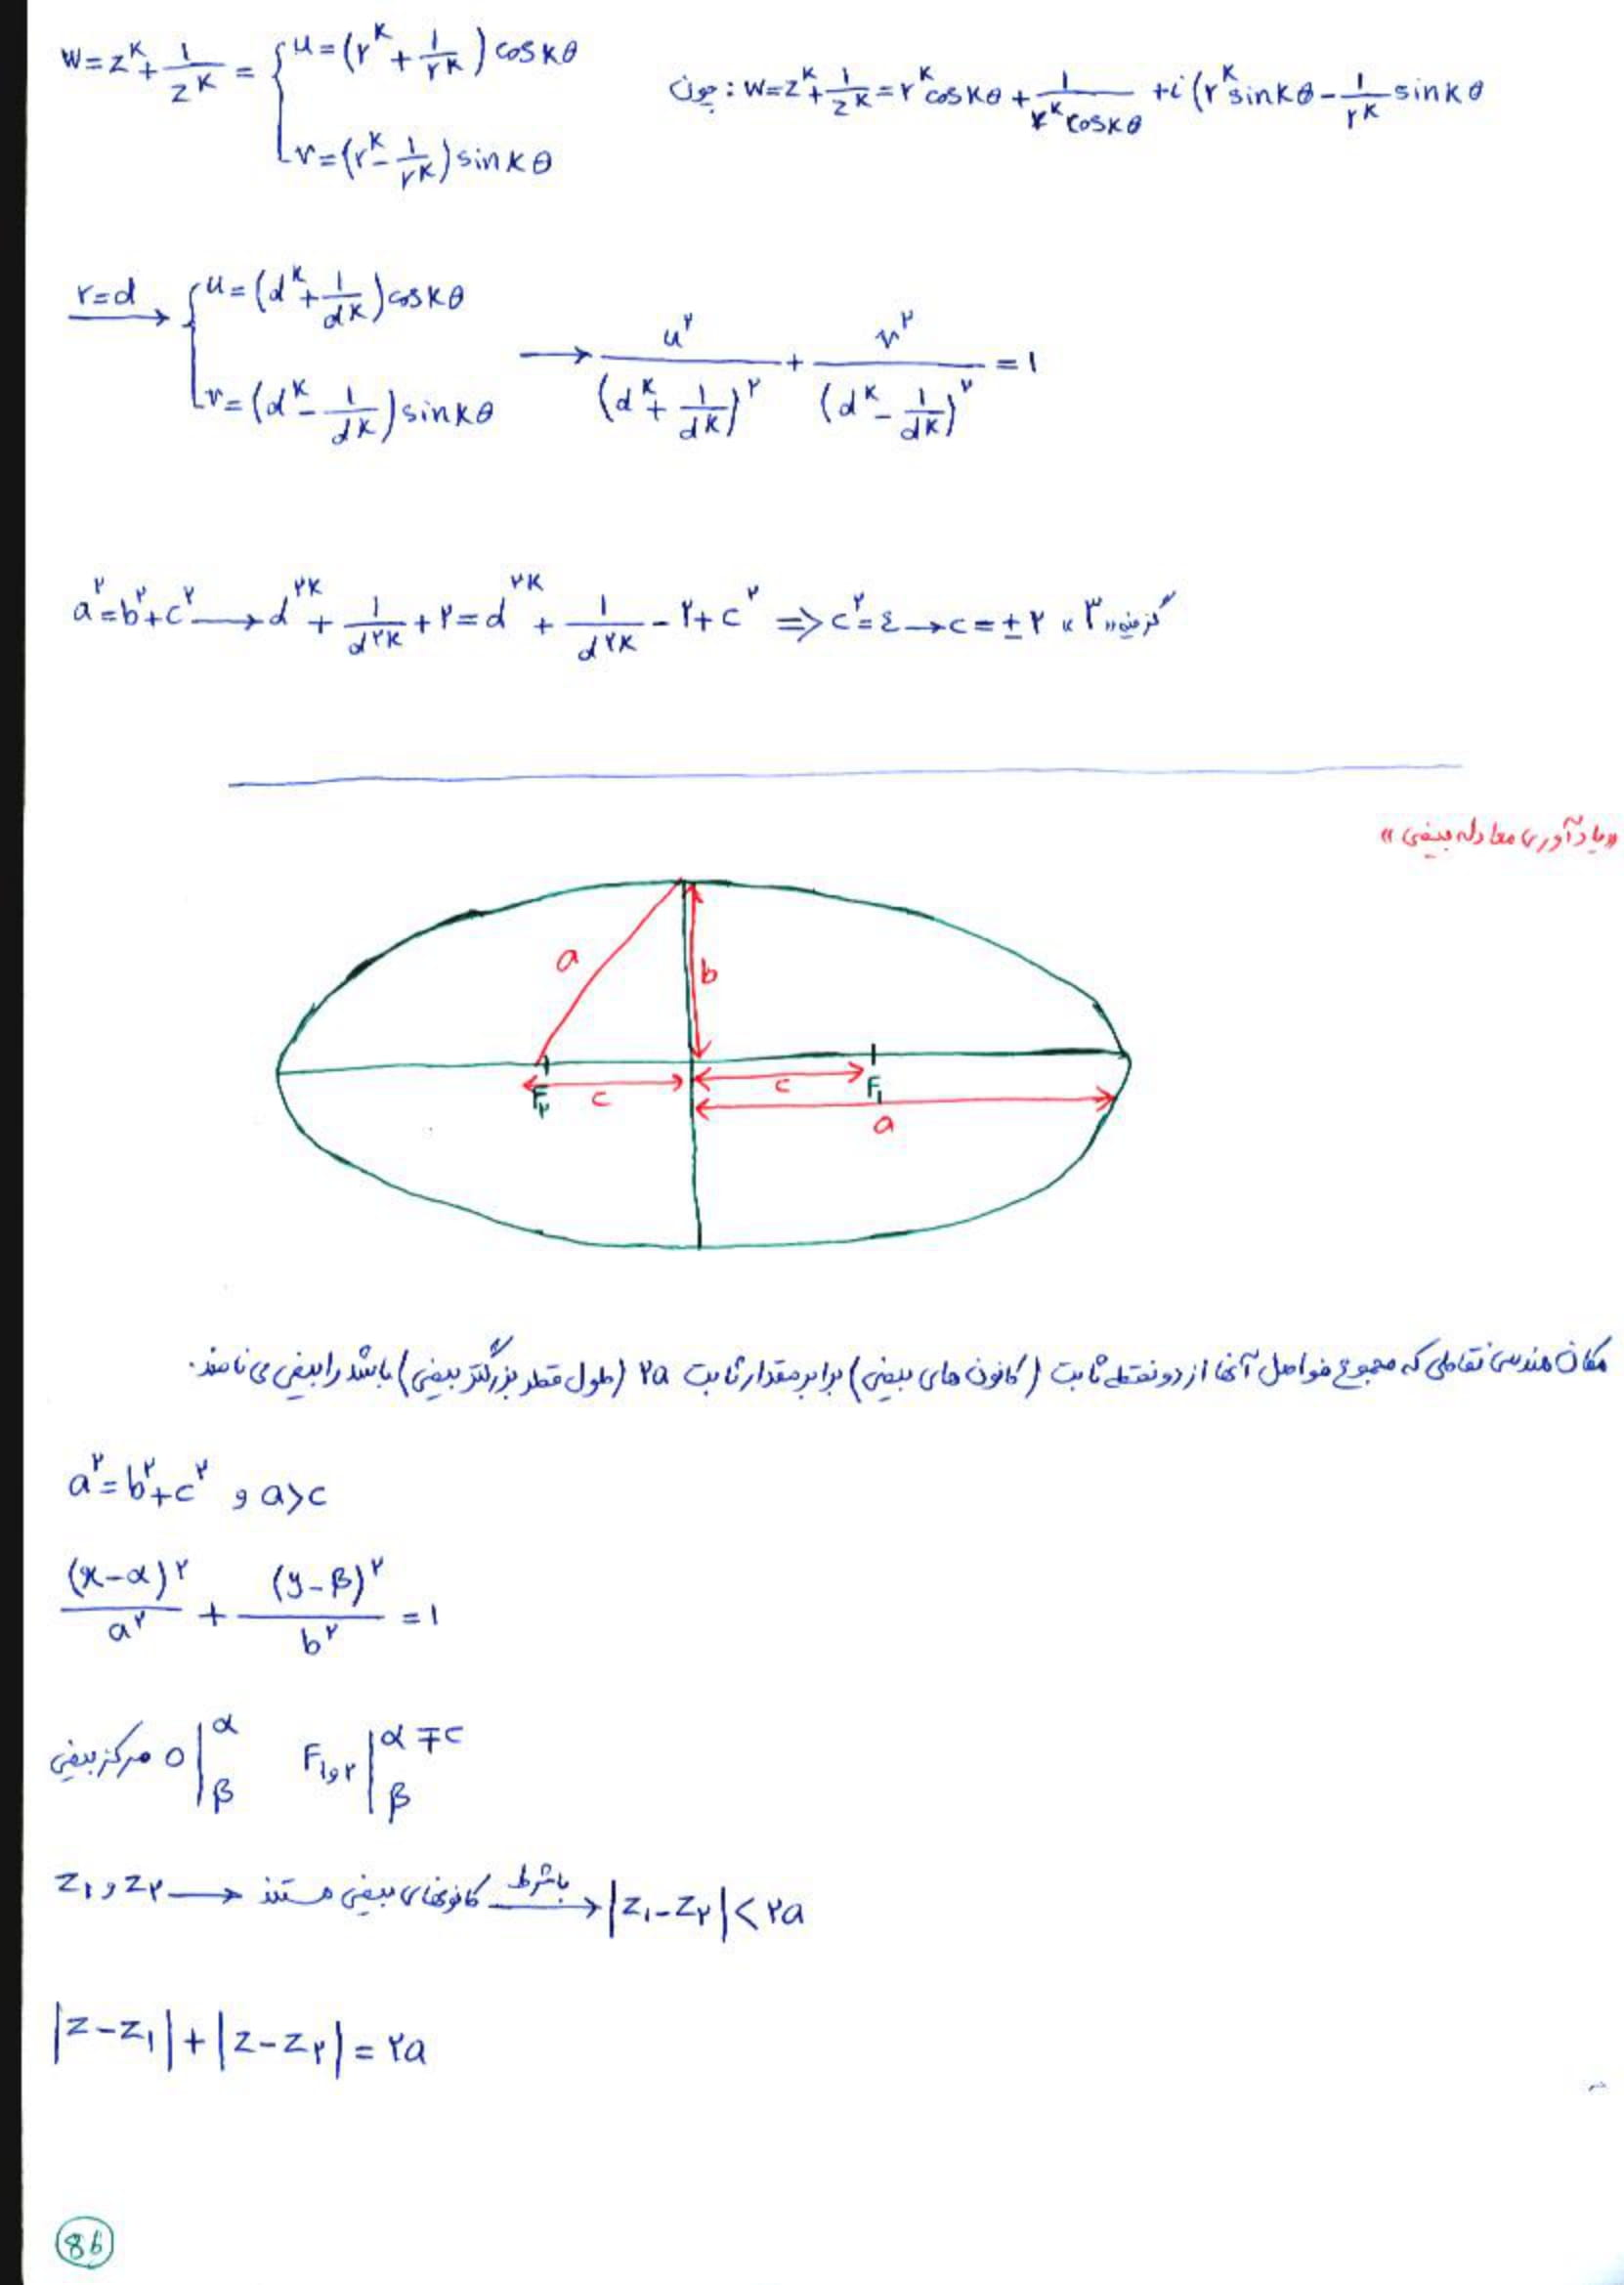 w = z^k + 1/z^k = { u = (r^k + 1/r^k) cos kθ
v = (r^k - 1/r^k) sin kθ
چون : w = z^k + 1/z^k = r^k cos kθ + 1/(r^k cos kθ) + i (r^k sin kθ - 1/r^k sin kθ
r=d → { u = (d^k + 1/d^k) cos kθ
v = (d^k - 1/d^k) sin kθ
→ u^۲/(d^k + 1/d^k)^۲ + v^۲/(d^k - 1/d^k)^۲ = ۱
a^۲ = b^۲ + c^۲ → d^۲k + ۱/d^۲k + ۲ = d^۲k + ۱/d^۲k - ۲ + c^۲ ⇒ c^۲ = ٤ → c = ± ۲ گزینه «۳»
«یادآوری معادله بیضی»
a
b
F۲
c
c
F۱
a
مکان هندسی نقاطی که مجموع فواصل آنها از دو نقطه ثابت (کانون های بیضی) برابر مقدار ثابت ۲a (طول قطر بزرگتر بیضی) باشد را بیضی می نامند.
a^۲ = b^۲ + c^۲ و a > c
(x-α)^۲/a^۲ + (y-β)^۲/b^۲ = ۱
مرکز بیضی O |α β F۱و۲ |α ∓ c β
z۱ و z۲ → کانونهای بیضی هستند باشرط → |z۱ - z۲| < ۲a
|z - z۱| + |z - z۲| = ۲a
86